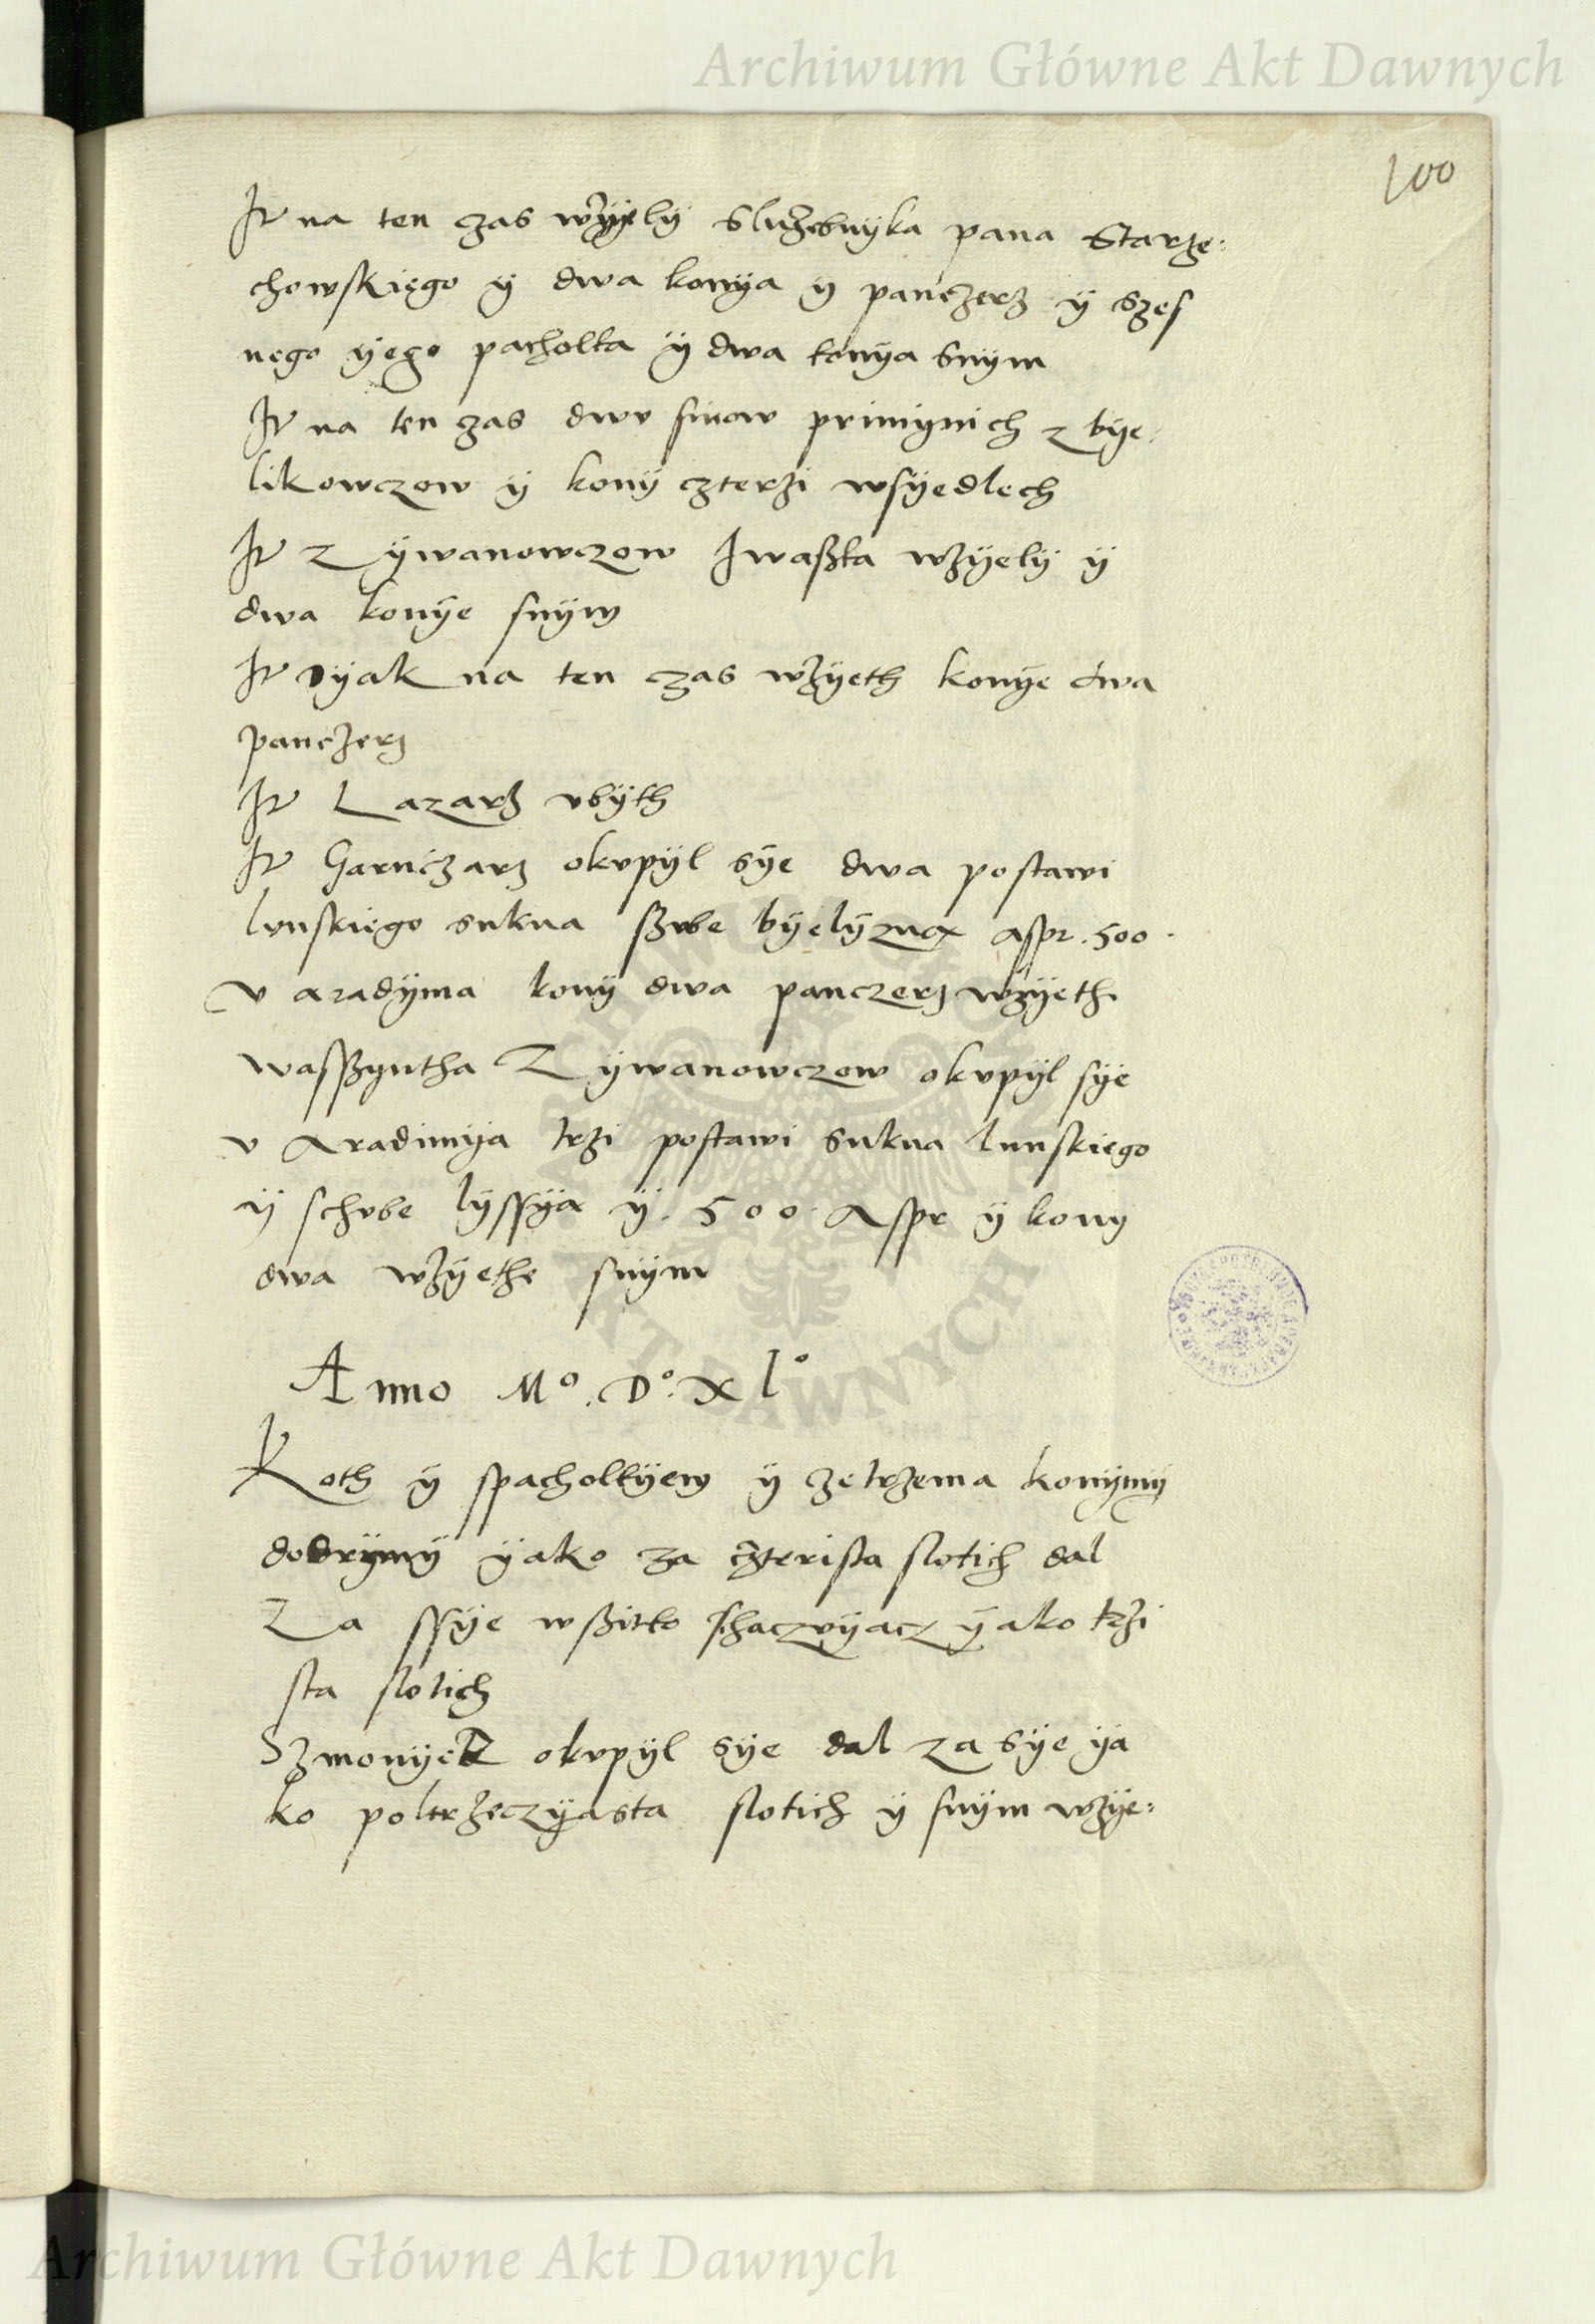 Archiwum Główne Akt Dawnych
100
It na ten czas wżyely Służebnyka pana Starze:
chowskięgo ÿ dwa konya ÿ pancżerz ÿ Szes
nego ÿego pacholka ÿ dwa konÿa Snÿm
It na ten czas dwv sinow z bÿe:
likowczow ÿ konÿ czterzi wsÿedlech
It Z ÿwanowczow Iwaßka wzÿelÿ ÿ
dwa konÿe snÿm
It Dÿak na ten czas wżÿeth konÿe dwa
pancżerz
It Lazarz vbÿth
It Garnczarz okvpÿl sÿe dwa postawi
lvnskięgo sukna ßvbe bÿelÿzna aspr. 500.
v aradÿma konÿ dwa panczerz wżÿeth
wasßyntha Zÿwanowczow okvpÿl sÿe
v Aradimÿa trzi postawi sukna lunskiego
ÿ schvbe lÿssÿa ÿ. 500. Aspr ÿ konÿ
dwa wżÿethe snÿm
Anno Mº. Dº. Xlº
Koth ÿ spacholkÿem ÿ zetrzema konÿmÿ
dobrÿmÿ ÿako za czterista slotich dal
Za ssÿe wßitko shaczvÿacz ÿako trżi
sta slotich
Szmonÿek okvpÿl sÿe dal za sÿe ÿa
ko poltrżeczÿasta slotich ÿ snÿm wżÿe:
Archiwum Główne Akt Dawnych